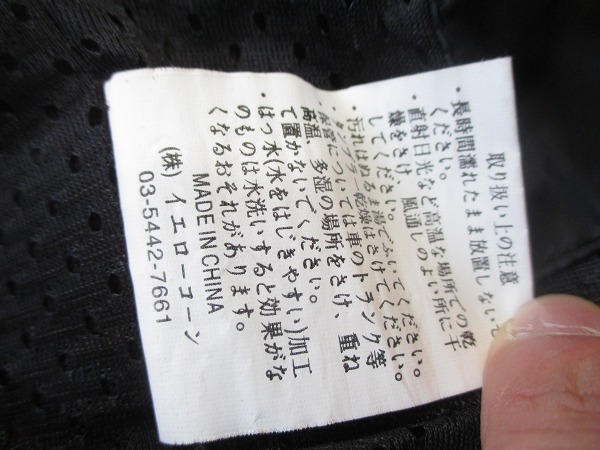 取り扱い上の注意
・長時間濡れたまま放置しないで
ください。
・直射日光など高温な場所での乾
燥をさけ、風通しのよい所に干
してください。
・汚れはぬるま湯でふいてください。
・タンブラー乾燥はさけてください。
・保管については車のトランク等
高温、多湿の場所をさけ、重ね
て置かないでください。
はっ水(水をはじきやすい)加工
のものは水洗いすると効果がな
くなるおそれがあります。
MADE IN CHINA
(株)イエローコーン
03-5442-7661